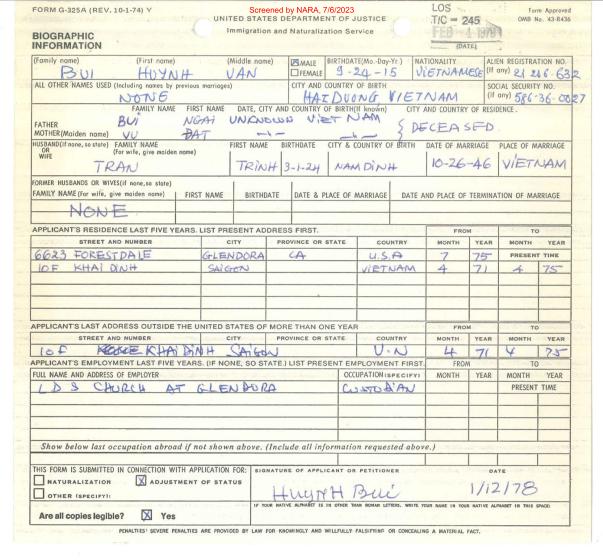 FORM G-325A (REV. 10-1-74) Y
Screened by NARA, 7/6/2023
UNITED STATES DEPARTMENT OF JUSTICE
Immigration and Naturalization Service
LOS
T/C - 245
FEB -4 1978
(DATE)
Form Approved
OMB No. 43-R436
BIOGRAPHIC
INFORMATION
(Family name) (First name) (Middle name) ☒ MALE ☐ FEMALE BIRTHDATE (Mo.-Day-Yr.) NATIONALITY ALIEN REGISTRATION NO.
BUI HUYNH VAN 9-24-15 VIETNAMESE (If any) 21 246 632
ALL OTHER NAMES USED (Including names by previous marriages) CITY AND COUNTRY OF BIRTH SOCIAL SECURITY NO.
NONE HAI DUONG VIETNAM (If any) 586-36-0027
FAMILY NAME FIRST NAME DATE, CITY AND COUNTRY OF BIRTH (If known) CITY AND COUNTRY OF RESIDENCE.
FATHER BUI NGAI UNKNOWN VIET NAM
MOTHER (Maiden name) VU DAT -"- -"- } DECEASED
HUSBAND (If none, so state) OR WIFE FAMILY NAME (For wife, give maiden name) FIRST NAME BIRTHDATE CITY & COUNTRY OF BIRTH DATE OF MARRIAGE PLACE OF MARRIAGE
TRAN TRINH 3-1-24 NAM DINH 10-26-46 VIETNAM
FORMER HUSBANDS OR WIVES (If none, so state)
FAMILY NAME (For wife, give maiden name) FIRST NAME BIRTHDATE DATE & PLACE OF MARRIAGE DATE AND PLACE OF TERMINATION OF MARRIAGE
NONE
APPLICANT'S RESIDENCE LAST FIVE YEARS. LIST PRESENT ADDRESS FIRST. FROM TO
STREET AND NUMBER CITY PROVINCE OR STATE COUNTRY MONTH YEAR MONTH YEAR
6623 FORESTDALE GLENDORA CA U.S.A 7 75 PRESENT TIME
10F KHAI DINH SAIGON VIETNAM 4 71 4 75
APPLICANT'S LAST ADDRESS OUTSIDE THE UNITED STATES OF MORE THAN ONE YEAR FROM TO
STREET AND NUMBER CITY PROVINCE OR STATE COUNTRY MONTH YEAR MONTH YEAR
10F KHAI DINH SAIGON V.N 4 71 4 75
APPLICANT'S EMPLOYMENT LAST FIVE YEARS. (IF NONE, SO STATE.) LIST PRESENT EMPLOYMENT FIRST. FROM TO
FULL NAME AND ADDRESS OF EMPLOYER OCCUPATION (SPECIFY) MONTH YEAR MONTH YEAR
LDS CHURCH AT GLENDORA CUSTODIAN PRESENT TIME
Show below last occupation abroad if not shown above. (Include all information requested above.)
THIS FORM IS SUBMITTED IN CONNECTION WITH APPLICATION FOR: SIGNATURE OF APPLICANT OR PETITIONER DATE
☐ NATURALIZATION ☒ ADJUSTMENT OF STATUS
☐ OTHER (SPECIFY):
Huynh Bui 1/12/78
Are all copies legible? ☒ Yes
IF YOUR NATIVE ALPHABET IS IN OTHER THAN ROMAN LETTERS, WRITE YOUR NAME IN YOUR NATIVE ALPHABET IN THIS SPACE:
PENALTIES: SEVERE PENALTIES ARE PROVIDED BY LAW FOR KNOWINGLY AND WILLFULLY FALSIFYING OR CONCEALING A MATERIAL FACT.